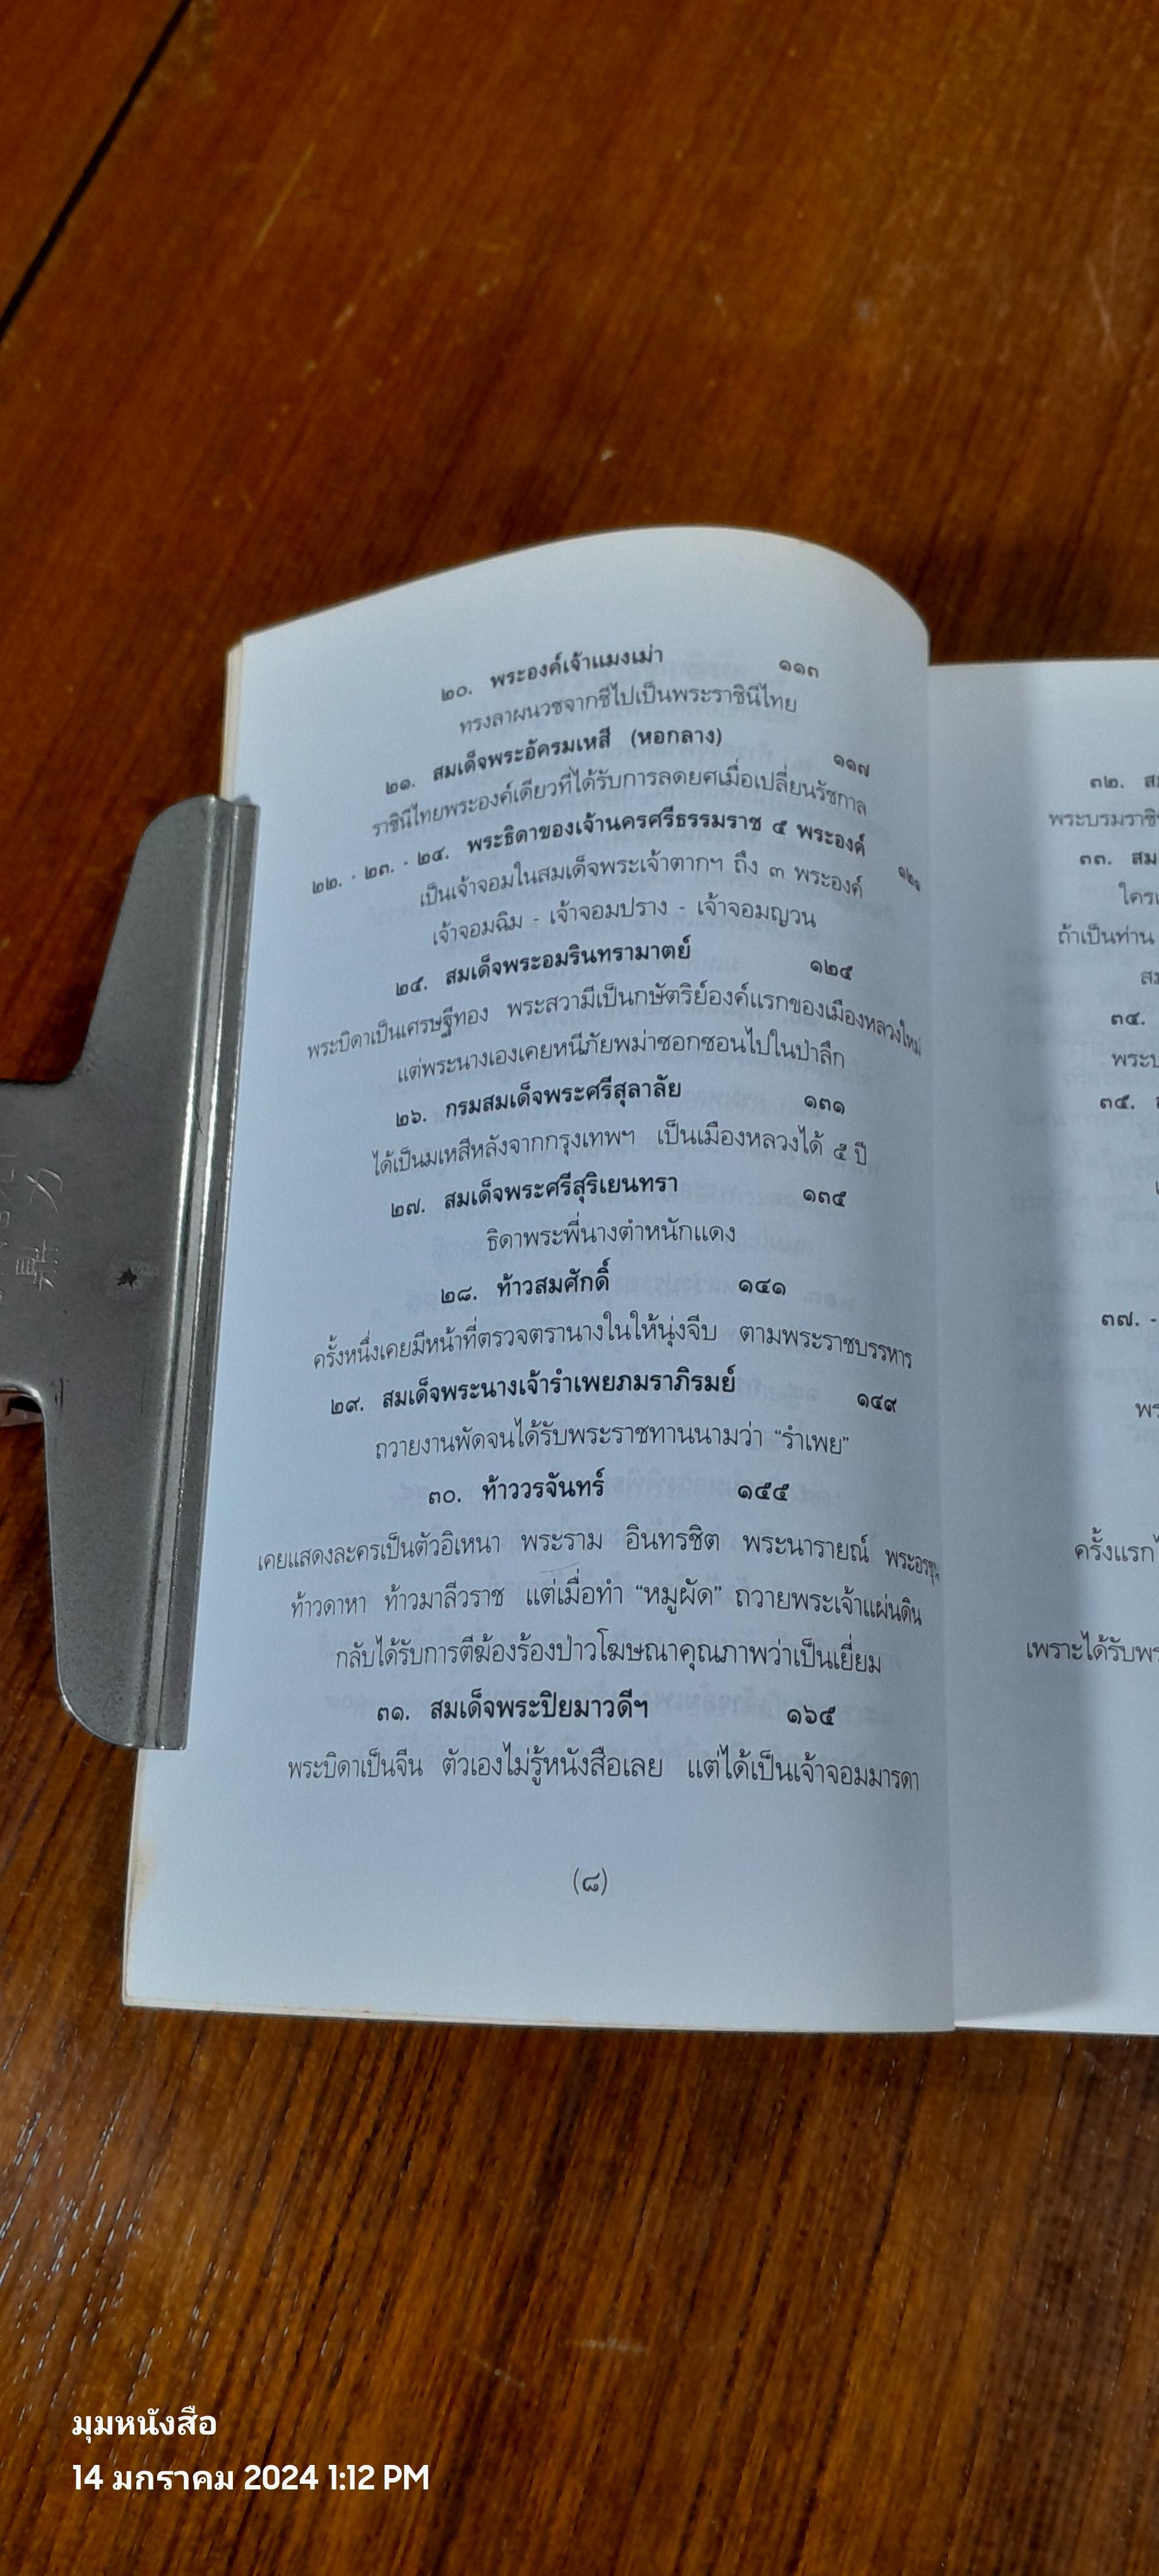 ๒๐. พระองค์เจ้าแมงเม่า ๑๑๓
ทรงลาผนวชจากชีไปเป็นพระราชินีไทย
๒๑. สมเด็จพระอัครมเหสี (หอกลาง) ๑๑๗
ราชินีไทยพระองค์เดียวที่ได้รับการลดยศเมื่อเปลี่ยนรัชกาล
๒๒. - ๒๓. - ๒๔. พระธิดาของเจ้านครศรีธรรมราช ๕ พระองค์ ๑๒๑
เป็นเจ้าจอมในสมเด็จพระเจ้าตากฯ ถึง ๓ พระองค์
เจ้าจอมฉิม - เจ้าจอมปราง - เจ้าจอมญวน
๒๕. สมเด็จพระอมรินทรามาตย์ ๑๒๕
พระบิดาเป็นเศรษฐีทอง พระสวามีเป็นกษัตริย์องค์แรกของเมืองหลวงใหม่
แต่พระนางเองเคยหนีภัยพม่าซอกซอนไปในป่าลึก
๒๖. กรมสมเด็จพระศรีสุลาลัย ๑๓๑
ได้เป็นมเหสีหลังจากกรุงเทพฯ เป็นเมืองหลวงได้ ๕ ปี
๒๗. สมเด็จพระศรีสุริเยนทรา ๑๓๕
ธิดาพระพี่นางตำหนักแดง
๒๘. ท้าวสมศักดิ์ ๑๔๑
ครั้งหนึ่งเคยมีหน้าที่ตรวจตรานางในให้นุ่งจีบ ตามพระราชบรรหาร
๒๙. สมเด็จพระนางเจ้ารำเพยภมราภิรมย์ ๑๔๙
ถวายงานพัดจนได้รับพระราชทานนามว่า “รำเพย”
๓๐. ท้าววรจันทร์ ๑๕๕
เคยแสดงละครเป็นตัวอิเหนา พระราม อินทรชิต พระนารายณ์ พระอรชุน
ท้าวดาหา ท้าวมาลีวราช แต่เมื่อทำ “หมูผัด” ถวายพระเจ้าแผ่นดิน
กลับได้รับการตีฆ้องร้องป่าวโฆษณาคุณภาพว่าเป็นเยี่ยม
๓๑. สมเด็จพระปิยมาวดีฯ ๑๖๕
พระบิดาเป็นจีน ตัวเองไม่รู้หนังสือเลย แต่ได้เป็นเจ้าจอมมารดา
(๘)
๓๒.
พระบรมราชิ
๓๓. สม
ใคร
ถ้าเป็นท่าน
๓๔.
๓๕.
๓๗. -
ครั้งแรก
เพราะได้รับ
มุมหนังสือ
14 มกราคม 2024 1:12 PM